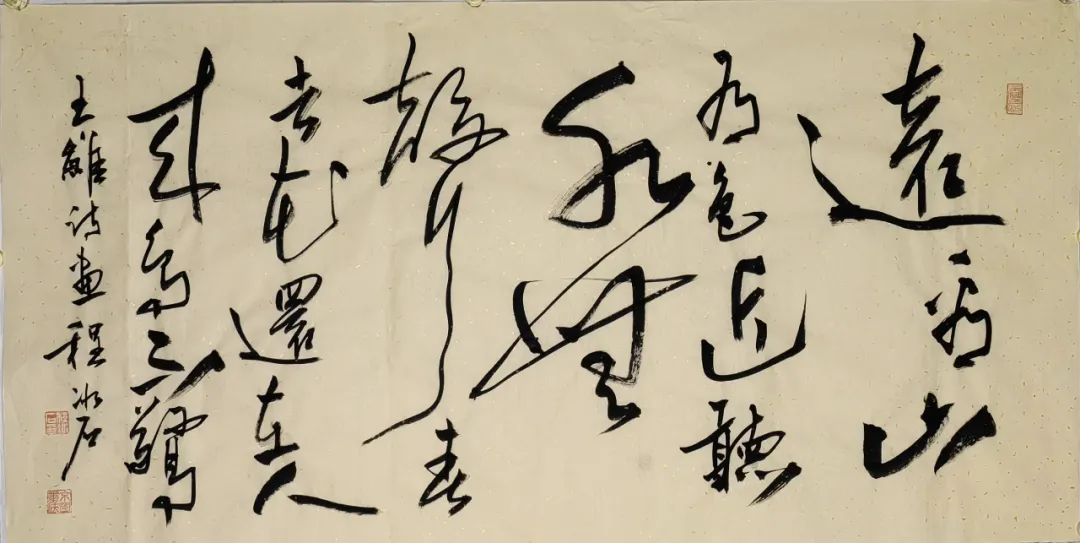 遠看山
有色近聽
水無
聲春
去花還在人
來鳥不驚
王維诗畫 程冰石